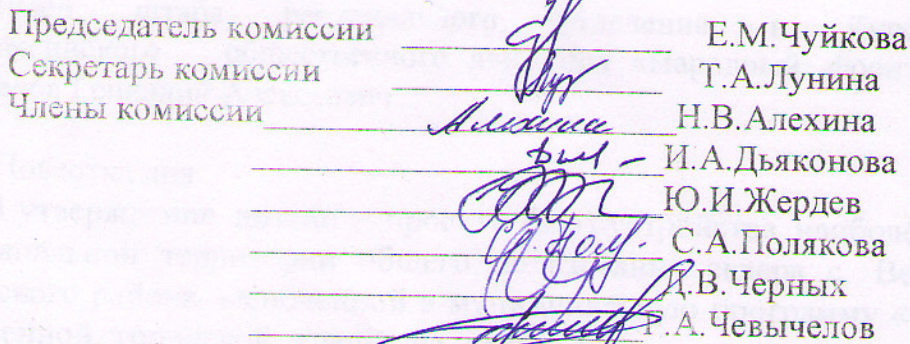 Председатель комиссии Е.М.Чуйкова
Секретарь комиссии Т.А.Лунина
Члены комиссии Н.В.Алехина
И.А.Дьяконова
Ю.И.Жердев
С.А.Полякова
Д.В.Черных
Г.А.Чевычелов